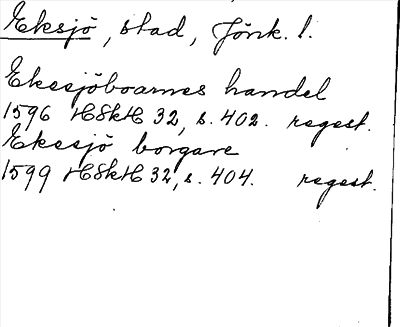 Eksjö, stad, Jönk. l.
Eksjöboarnes handel
1596 HSkH 32, s. 402. regest.
Eksjö borgare
1599 HSkH 32, s. 404. regest.